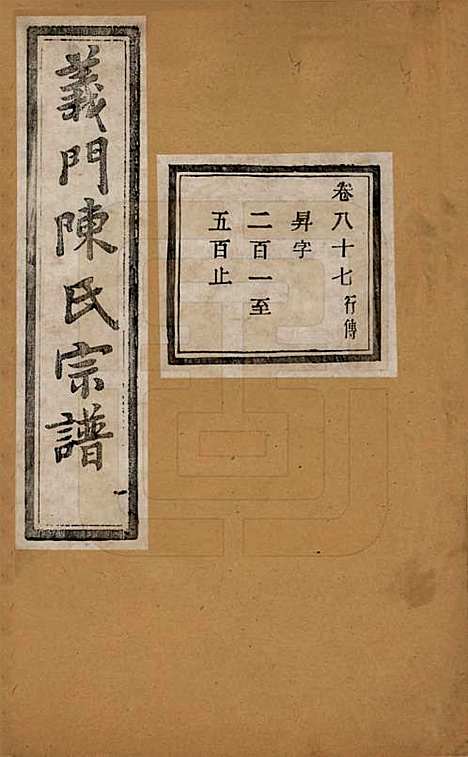 義門陳氏宗譜
卷八十七行傳
昇字
二百一至
五百止